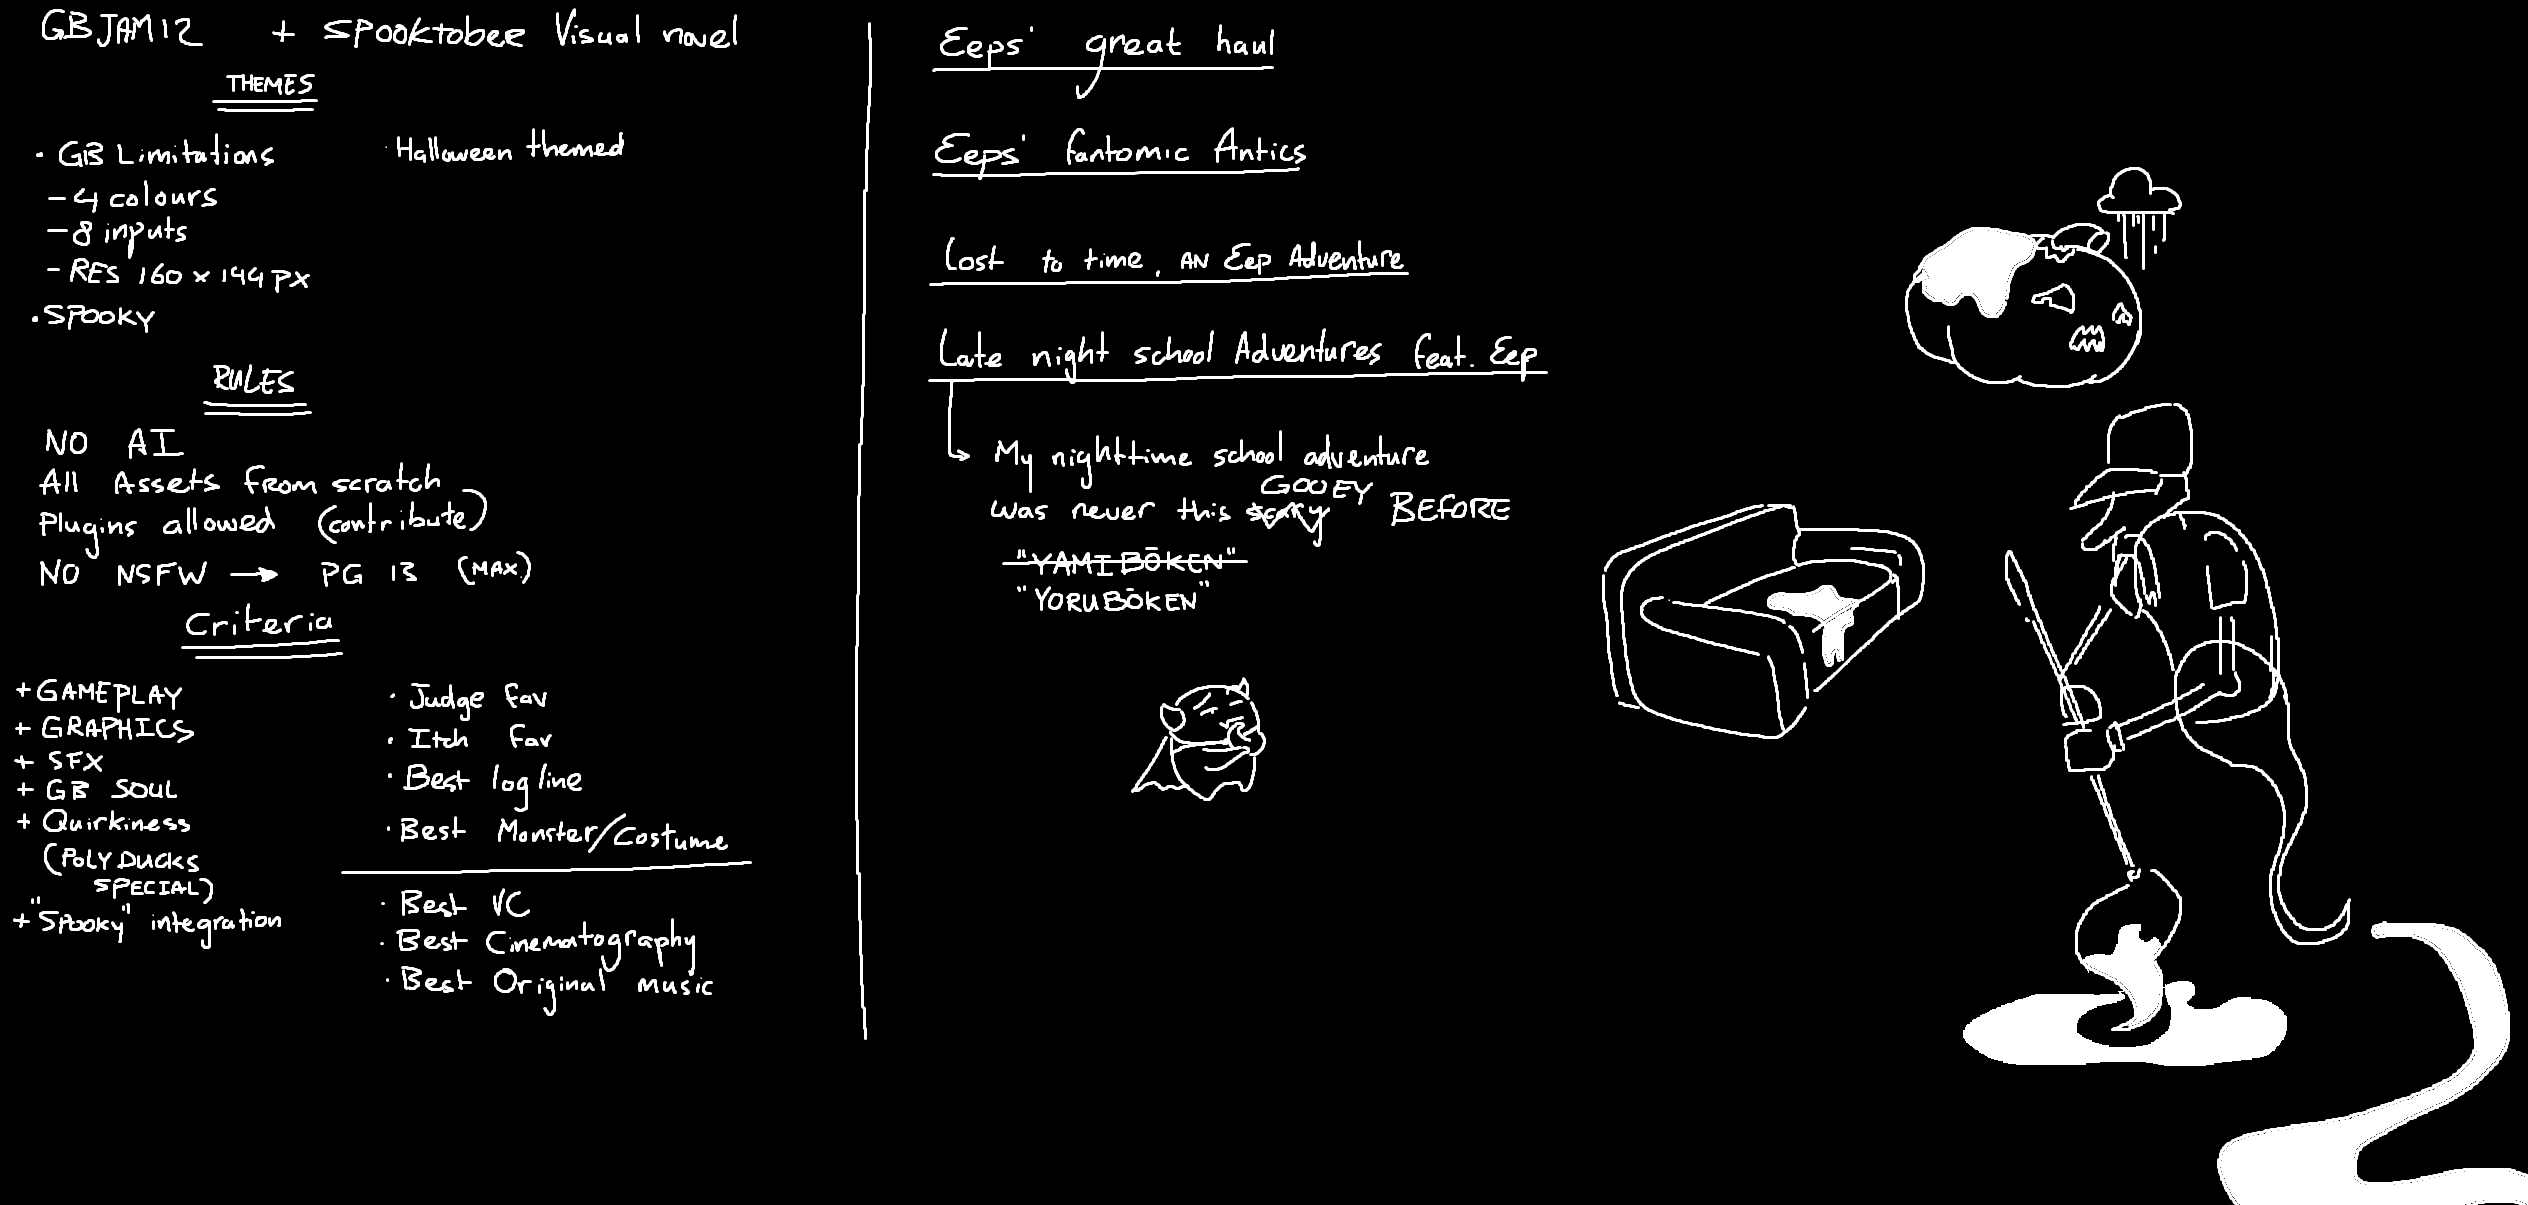 GBJAM12 + SPOOKTOBER Visual novel
THEMES
· GB Limitations
- 4 colours
- 8 inputs
- RES 160 x 144 PX
· SPOOKY
· Halloween themed
RULES
NO AI
All Assets from scratch
Plugins allowed (contribute)
NO NSFW → PG 13 (MAX)
Criteria
+ GAMEPLAY
+ GRAPHICS
+ SFX
+ GB SOUL
+ Quirkiness
(POLYDUCKS
SPECIAL)
+ "Spooky" integration
· Judge fav
· Itch fav
· Best logline
· Best Monster/Costume
· Best VC
· Best Cinematography
· Best Original music
Eeps' great haul
Eeps' fantomic Antics
Lost to time, AN Eep Adventure
Late night school Adventures feat. Eep
My nighttime school adventure
was never this scary GOOEY BEFORE
"YAMI BŌKEN"
"YORU BŌKEN"